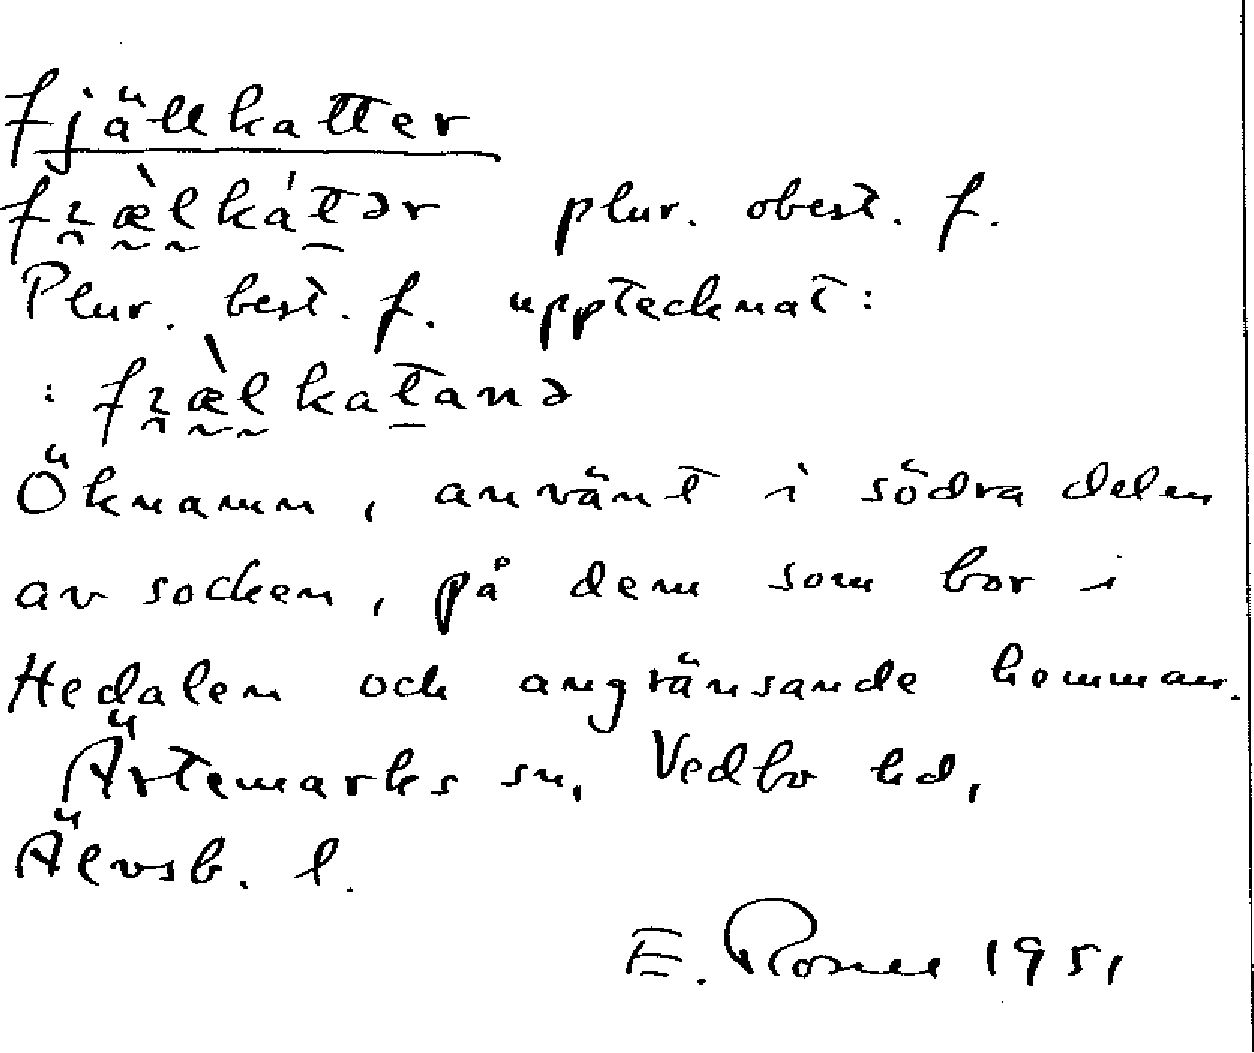 Fjällkatter
plur. obest. f.
Plur. best. f. upptecknat:
Öknamn, använt i södra delen
av socken, på dem som bor i
Hedalen och angränsande hemman.
Ärtemarks sn, Vedbo hd,
Älvsb. l.
E. 1951